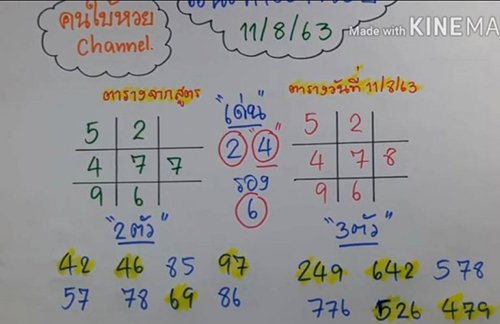 คนใบ้หวย
Channel.
11/8/63
Made with KINEMA
ตารางจากสูตร
"เด่น"
ตารางวันที่ 11/8/63
5 2
4 7 7
9 6
2 4
รอง
6
5 2
4 7 8
9 6
"2ตัว"
"3ตัว"
42 46 85 97
57 78 69 86
249 642 578
776 526 479